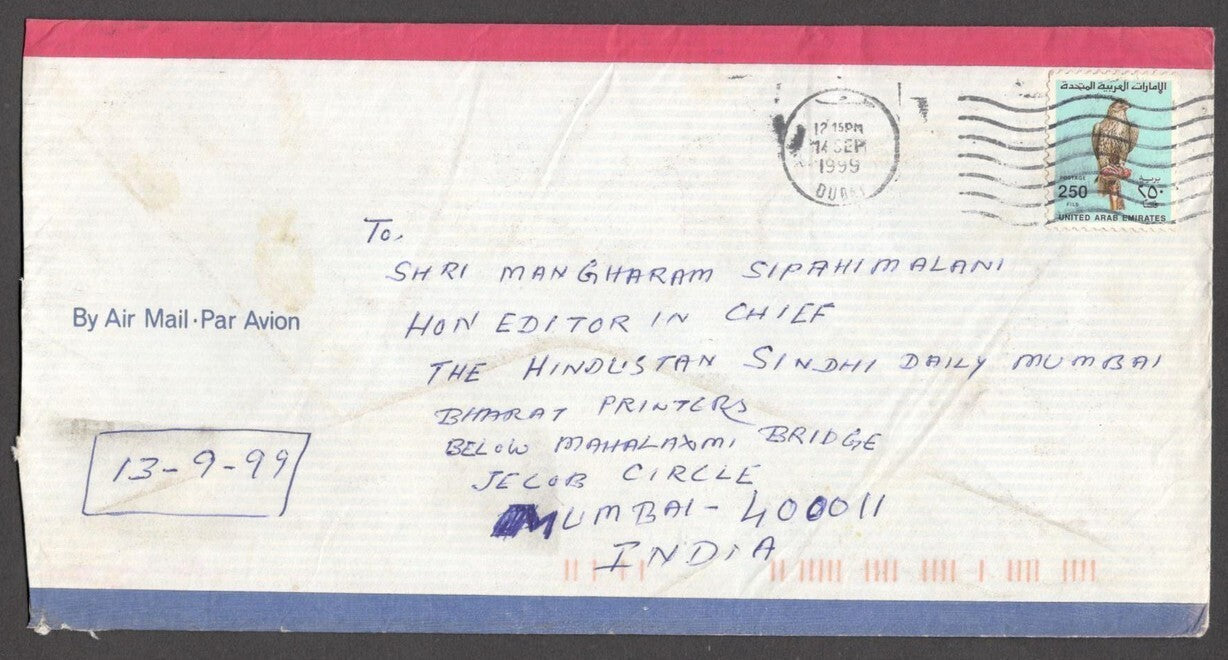 الإمارات العربية المتحدة
12 15PM
14 SEP
1999
DUBAI
POSTAGE
بريد
250
٢٥٠
FILS
فلس
UNITED ARAB EMIRATES
To,
SHRI MANGHARAM SIPAHIMALANI
HON EDITOR IN CHIEF
By Air Mail·Par Avion
THE HINDUSTAN SINDHI DAILY MUMBAI
BHARAT PRINTERS
BELOW MAHALAXMI BRIDGE
JECOB CIRCLE
13-9-99
MUMBAI- 400011
INDIA